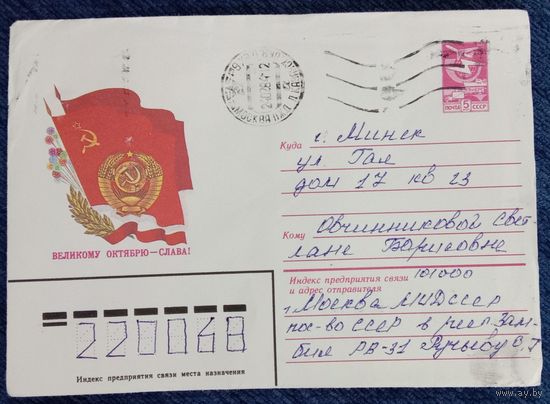 МОСКВА
ПОЧТА 5 СССР
Куда г. Минск
ул. Гая
дом 17 кв 23
Кому Овчинниковой Свет-
лане Борисовне
ВЕЛИКОМУ ОКТЯБРЮ—СЛАВА!
Индекс предприятия связи
и адрес отправителя 101000
г Москва МИД СССР
пос-во СССР в респ. Зам-
бия
220068
Индекс предприятия связи места назначения
www.ay.by